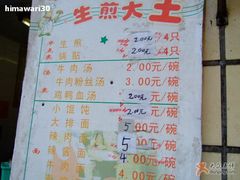 himawari30
生煎大王
生煎 2.00元/4只
锅贴 2.00元/4只
牛肉汤 2.00元/碗
牛肉粉丝汤 3.00元/碗
鸡鸭血汤 2.00元/碗
小馄饨 2.00元/碗
大排面 5.00元/碗
辣肉面 5.00元/碗
辣酱面 4.00元/碗